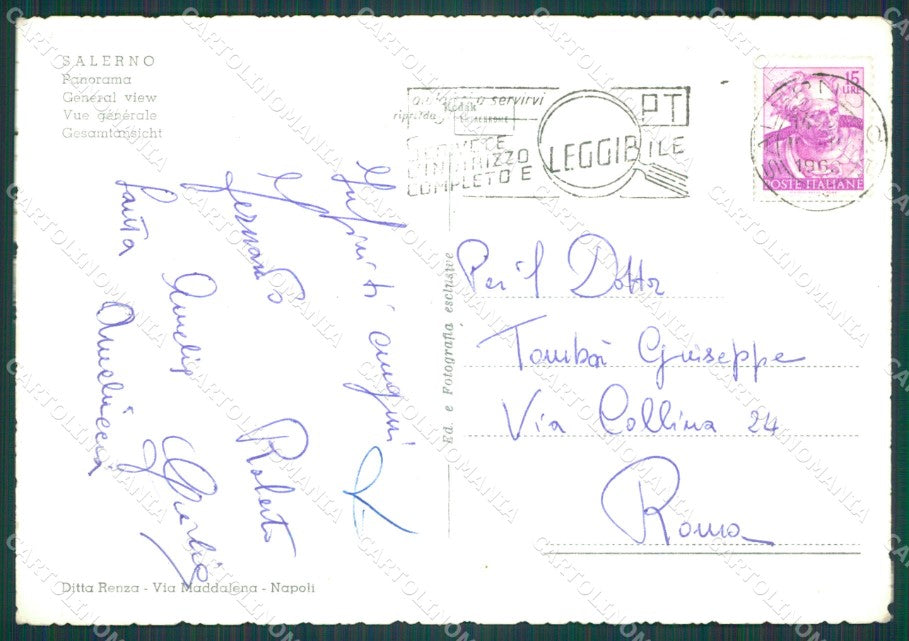 SALERNO
Panorama
General view
Vue générale
Gesamtansicht
a servirvi
Kodak
PT
INDIRIZZO
COMPLETO E LEGGIBILE
15
LIRE
196
POSTE ITALIANE
Infiniti auguri
Gennaro Roberto
Amelia
Santa Ameluccia
Ed. e Fotografia esclusive
Per il Dottor
Tombài Giuseppe
Via Collina 24
Roma
Ditta Renza - Via Maddalena - Napoli
CARTOLINOMANIA